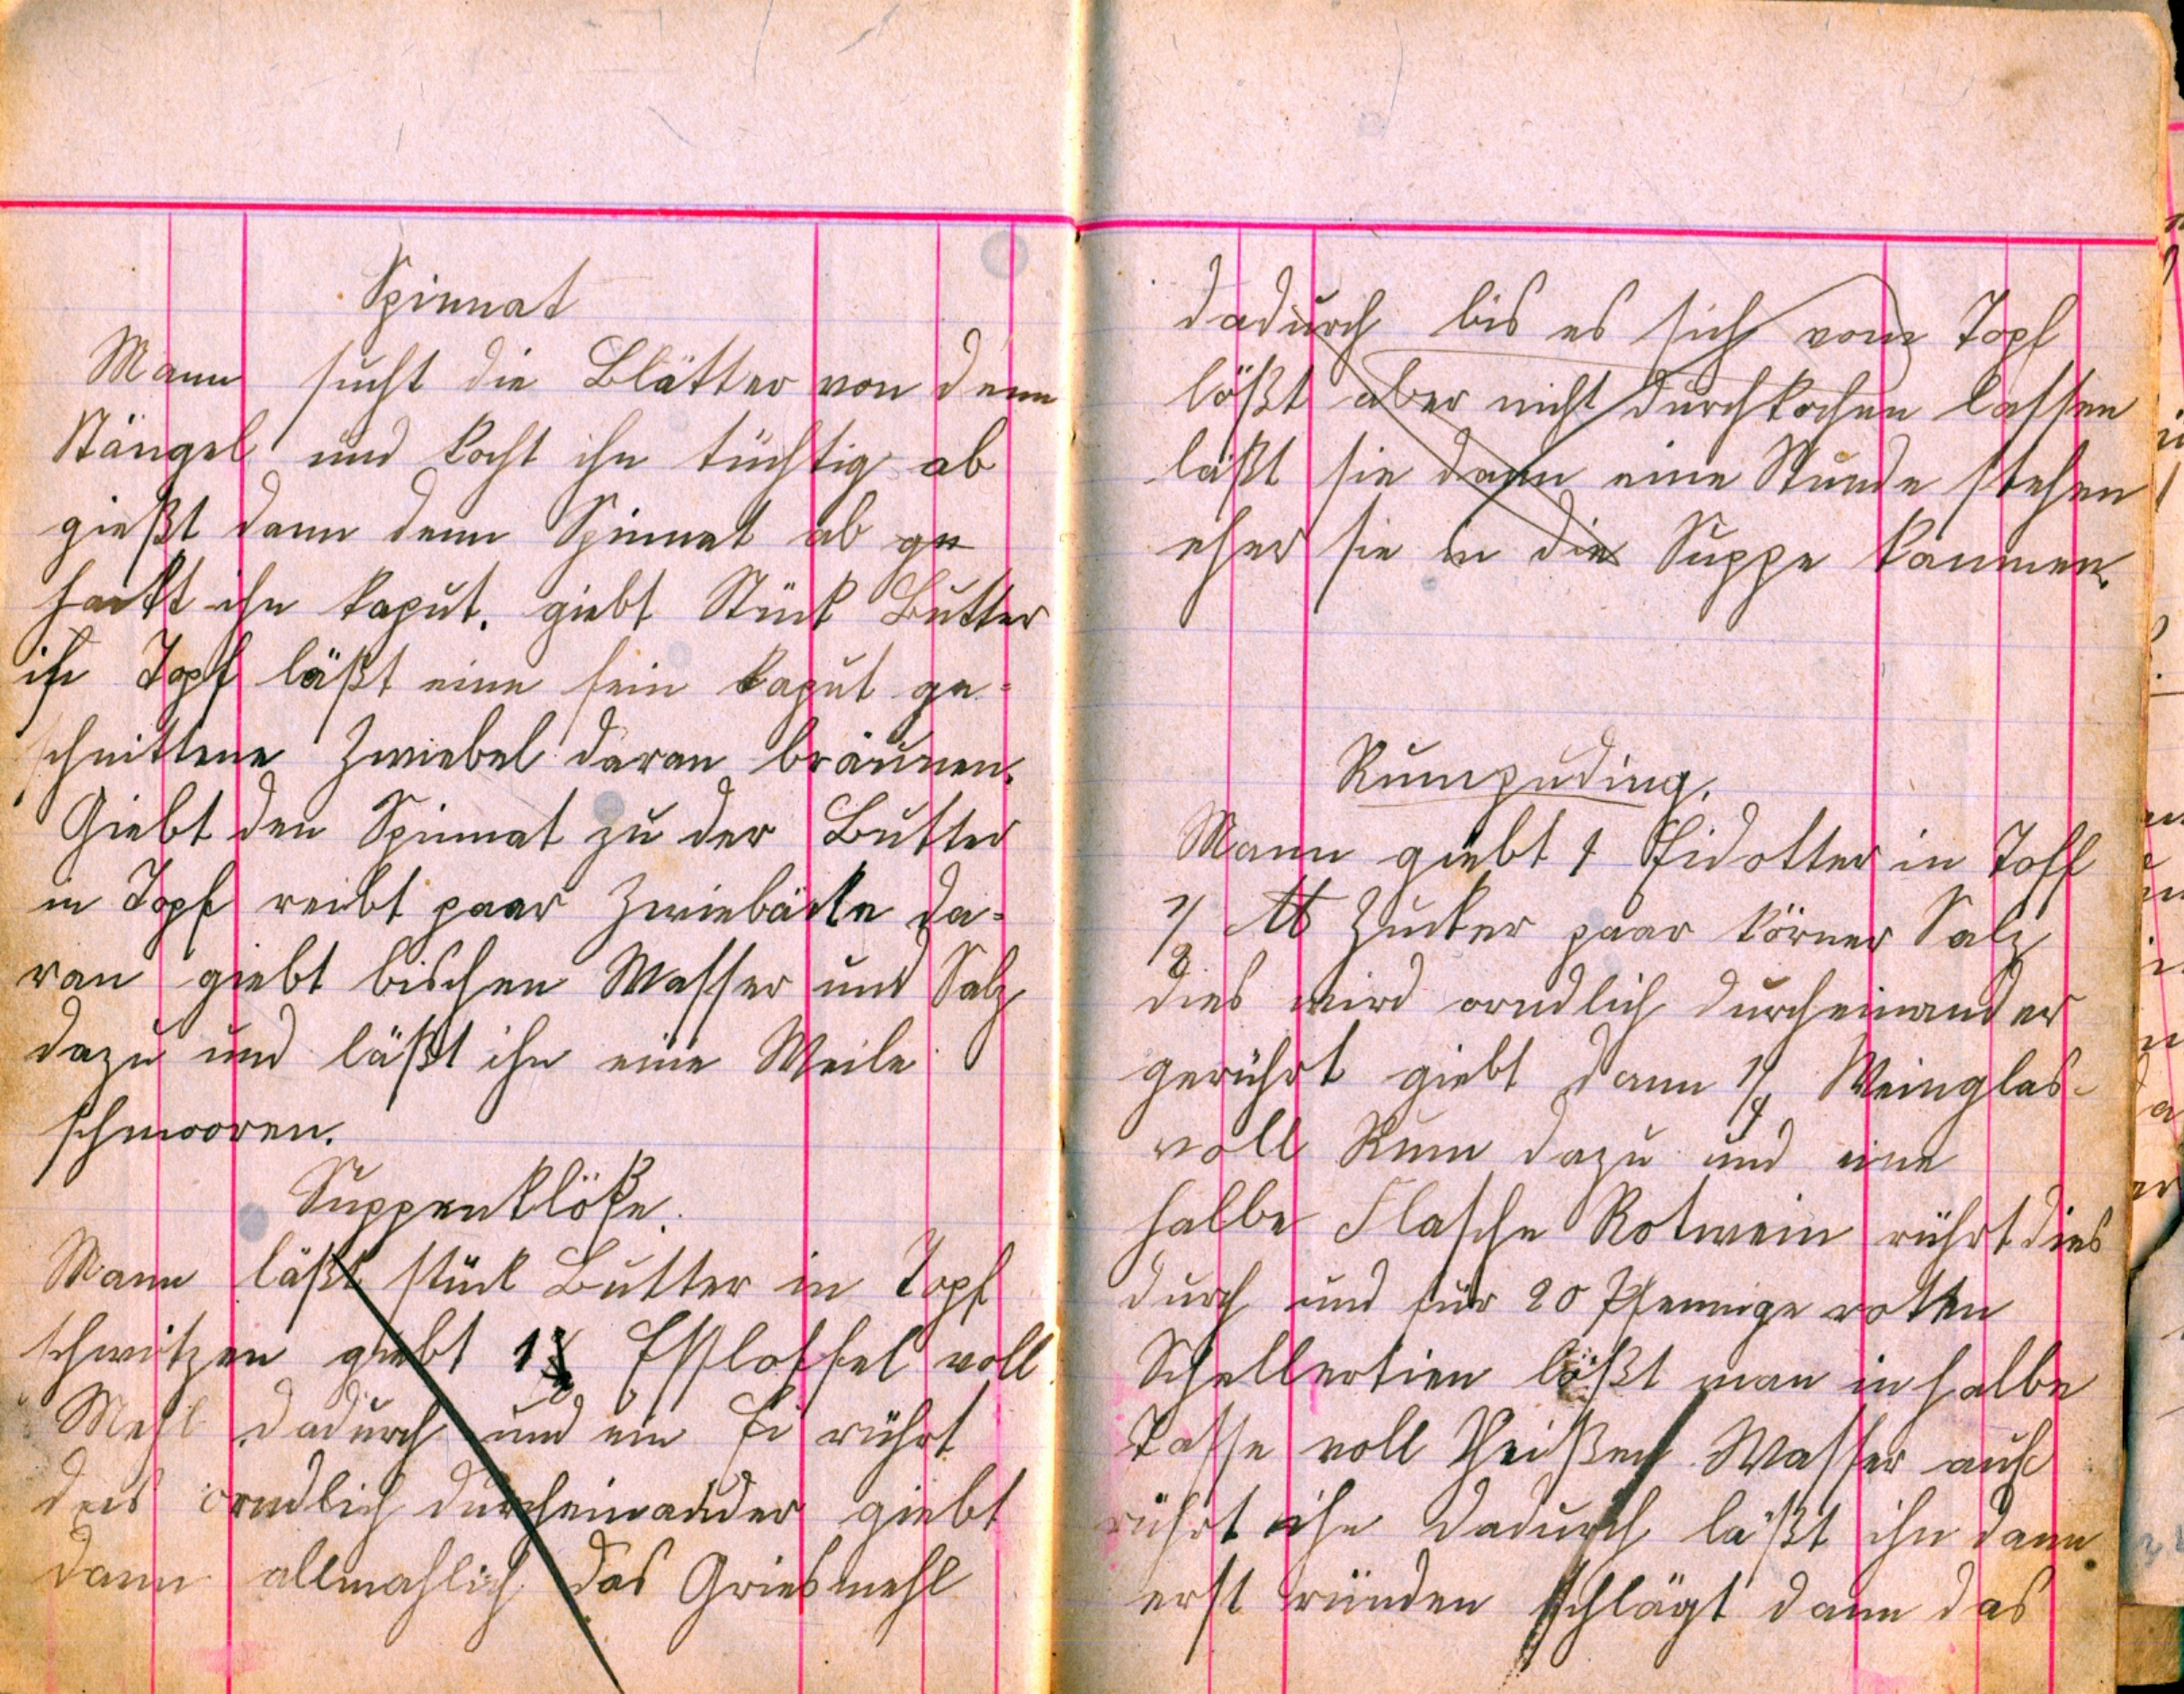 Spinnat
Mann sucht die Blätter von denn
Stängel und kocht ihn tüchtig ab
gießt dann denn Spinnat ab ge
hackt ihn kaput. giebt Stück Butter
in Topf läßt eine fein kaput ge-
schnittene Zwiebel daran bräunen.
Giebt den Spinnat zu der Butter
in Topf reibt paar Zwiebäcke da-
ran giebt bischen Wasser und Salz
dazu und läßt ihn eine Weile
schmooren.
Suppenklöße.
Mann läßt stück Butter in Topf
schwitzen giebt 1 Esslöffel voll
Mehl dadurch und ein Ei rührt
dies orndlich durcheinander giebt
dann allmahlich das Griesmehl
dadurch bis es sich vom Topf
lößt aber nicht durchkochen lassen
läßt sie dann eine Stunde stehen
eher sie in die Suppe kommen.
Rumpuding.
Mann giebt 1 Eidotter in Topf
1/8 ℔ Zucker paar körner Salz
dies wird orndlich durcheinander
gerührt giebt dann 1/4 Weinglas-
voll Rum dazu und eine
halbe Flasche Rotwein rührt dies
durch und für 20 Pfennige roten
Schellertien lößt man in halbe
Tasse voll heißen Wasser auf
rührt ihn dadurch läßt ihn dann
erst ründen schlägt dann das